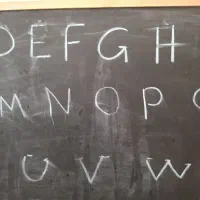 D E F G H
M N O P
U V W